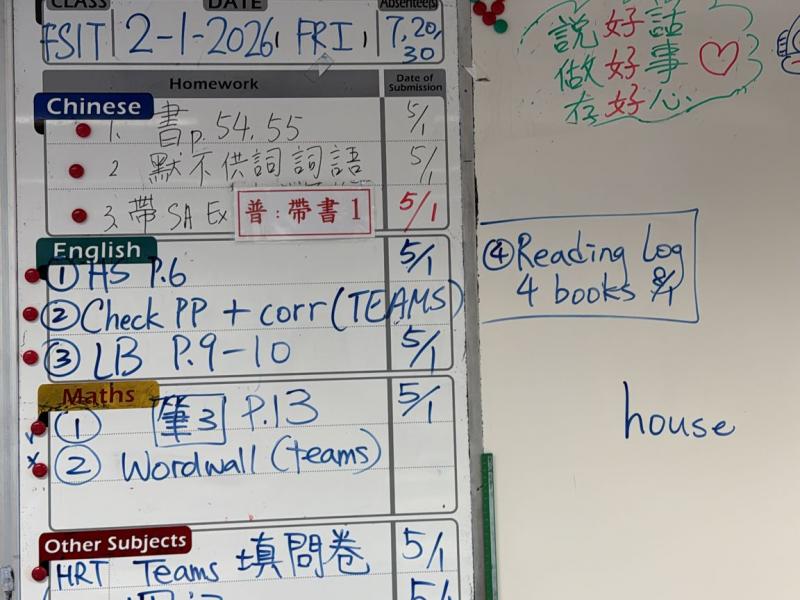 CLASS DATE Absentee(s)
FSIT 2-1-2026 FRI 7, 20, 30
Homework Date of Submission
Chinese
1. 書p. 54. 55 5/1
2 默不供詞詞語 5/1
3. 帶 SA Ex 普:帶書1 5/1
English
① HS P.6 5/1
② Check PP + corr (TEAMS)
③ LB P.9-10 5/1
Maths
① 筆3 P.13 5/1
② Wordwall (teams)
Other Subjects
HRT Teams 填問卷 5/1
說好話
做好事
存好心
④ Reading Log
4 books
house